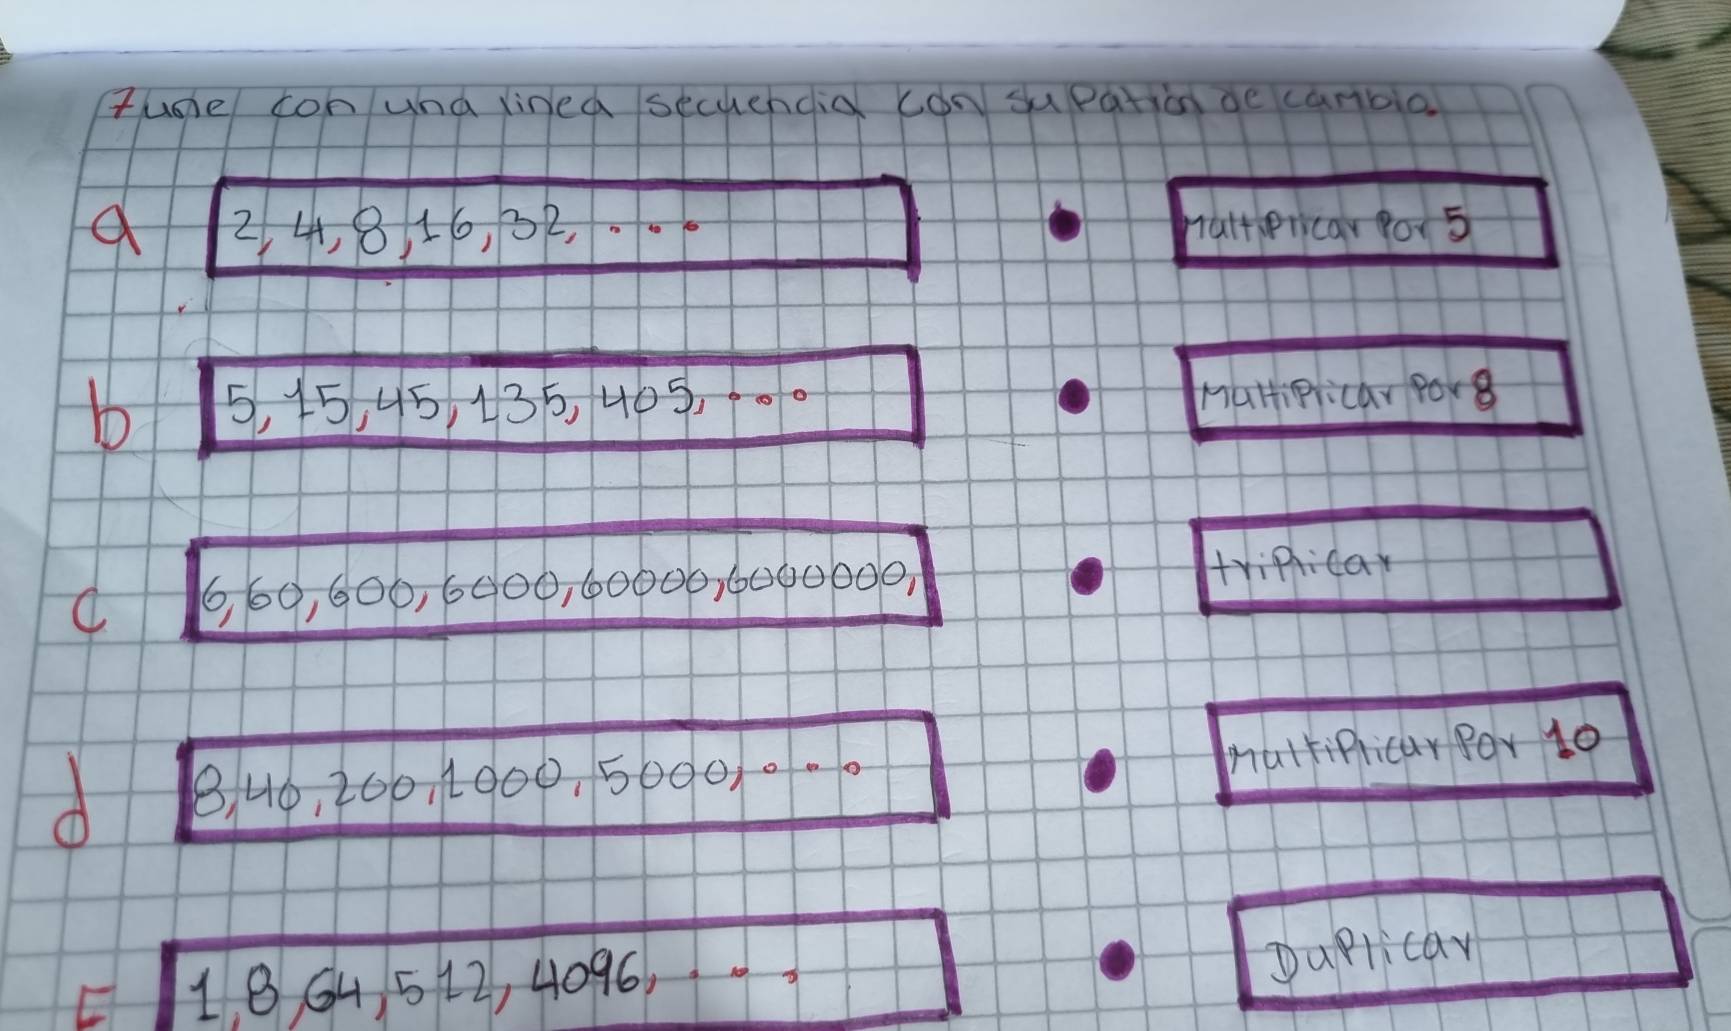 7une con una linea secuencia con su patrón de cambio.
a 2, 4, 8, 16, 32, ...
Multiplicar Por 5
b 5, 15, 45, 135, 405, ...
Multiplicar Por 8
c 6, 60, 600, 6000, 60000, 6000000,
triplicar
d 8, 40, 200, 1000, 5000, ...
Multiplicar Por 10
E 1, 8, 64, 512, 4096, ...
Duplicar